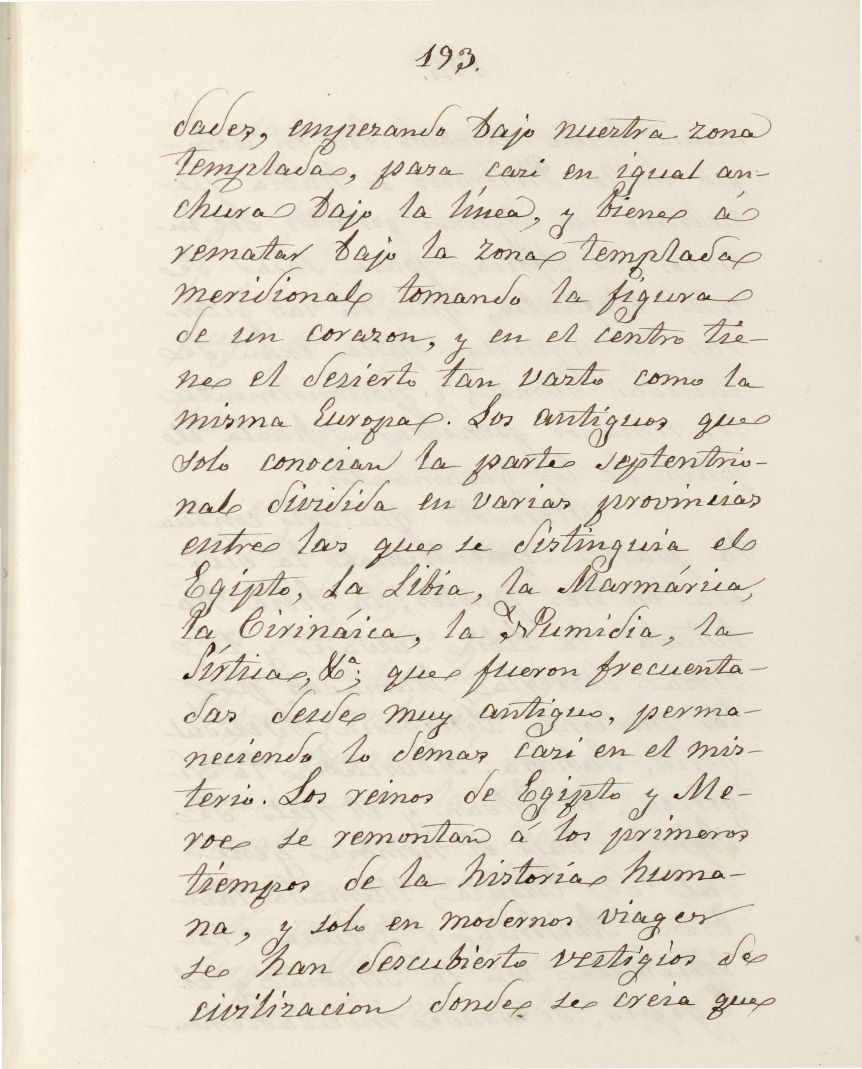 193.
dades, empezando bajo nuestra zona
templada, pasa casi en igual an-
chura bajo la línea, y biene á
rematar bajo la zona templada
meridional tomando la figura
de un corazon, y en el centro tie-
ne el desierto tan vasto como la
misma Europa. Los antiguos que
solo conocian la parte septentrio-
nal dividida en varias provincias
entre las que se distinguia el
Egipto, La Libia, la Marmárica,
la Cirináica, la Numidia, la
Sírtica, &ª; que fueron frecuenta-
das desde muy antiguo, perma-
neciendo lo demas casi en el mis-
terio. Los reinos de Egipto y Me-
roe se remontan á los primeros
tiempos de la historia huma-
na, y solo en modernos viages
se han descubierto vestigios de
civilizacion donde se creia que